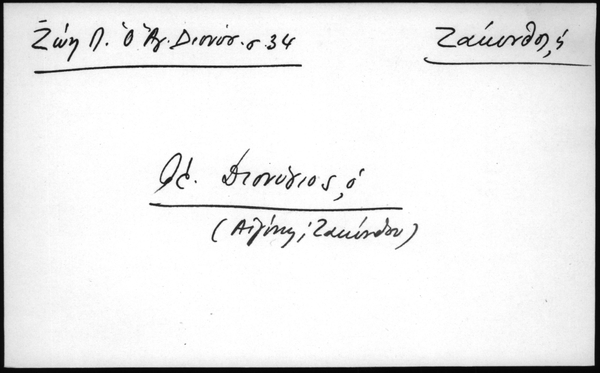 Ζώη Λ. Ὁ Ἅγ. Διονύσ. σ. 34
Ζάκυνθος, ἡ
Ἅγ. Διονύσιος, ὁ
(Αἰγίνης, Ζακύνθου)